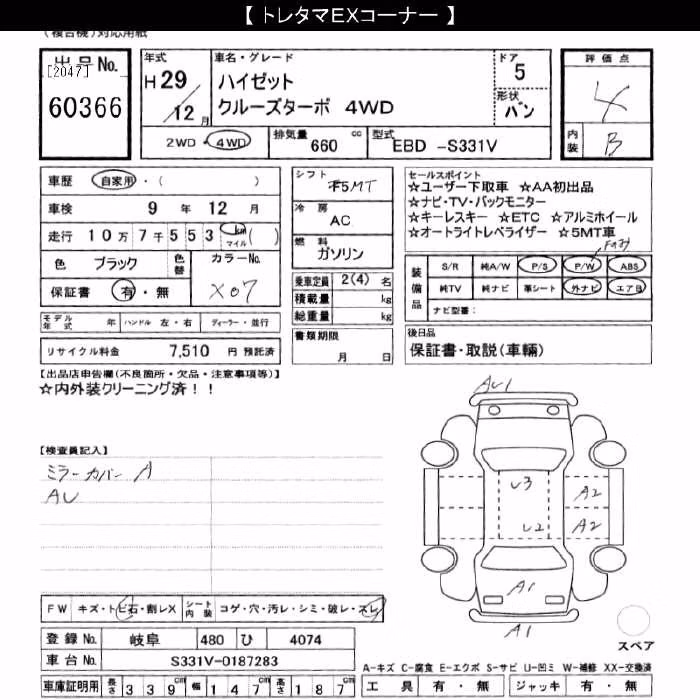 【 トレタマEXコーナー 】
(複合機)対応用紙
出品No.
[2047]
60366
年式
H 29
12 月
車名・グレード
ハイゼット
クルーズターボ 4WD
ドア
5
形状
バン
評価点
4
内装
B
2WD・4WD
排気量 660 cc
型式 EBD -S331V
車歴 自家用・( )
車検 9 年 12 月
走行 10万7千553 km マイル ( )
色 ブラック 色替 カラーNo.
X07
保証書 有・無
シフト
F5MT
冷房
AC
燃料
ガソリン
乗車定員 2(4) 名
積載量 kg
総重量 kg
書類期限
月 日
セールスポイント
☆ユーザー下取車 ☆AA初出品
☆ナビ・TV・バックモニター
☆キーレスキー ☆ETC ☆アルミホイール
☆オートライトレベライザー ☆5MT車
Fのみ
装備品
S/R 純A/W P/S P/W ABS
純TV 純ナビ 革シート 外ナビ エアB
ナビ型番：
モデル年式 年 ハンドル 左・右 ディーラー・並行
リサイクル料金 7,510 円 預託済
後日品
保証書・取説(車輛)
【出品店申告欄(不良箇所・欠品・注意事項等)】
☆内外装クリーニング済！！
【検査員記入】
ミラーカバー A
AU
AU1
U3
U2
A2
A2
A1
A1
スペア
FW キズ・トビ石・割レX シート内装 コゲ・穴・汚レ・シミ・破レ・スレ
登録No. 岐阜 480 ひ 4074
車台No. S331V-0187283
車庫証明用 長さ 339cm 幅 147cm 高さ 187cm
A-キズ C-腐食 E-エクボ S-サビ U-凹ミ W-補修 XX-交換済
工具 有・無 ジャッキ 有・無